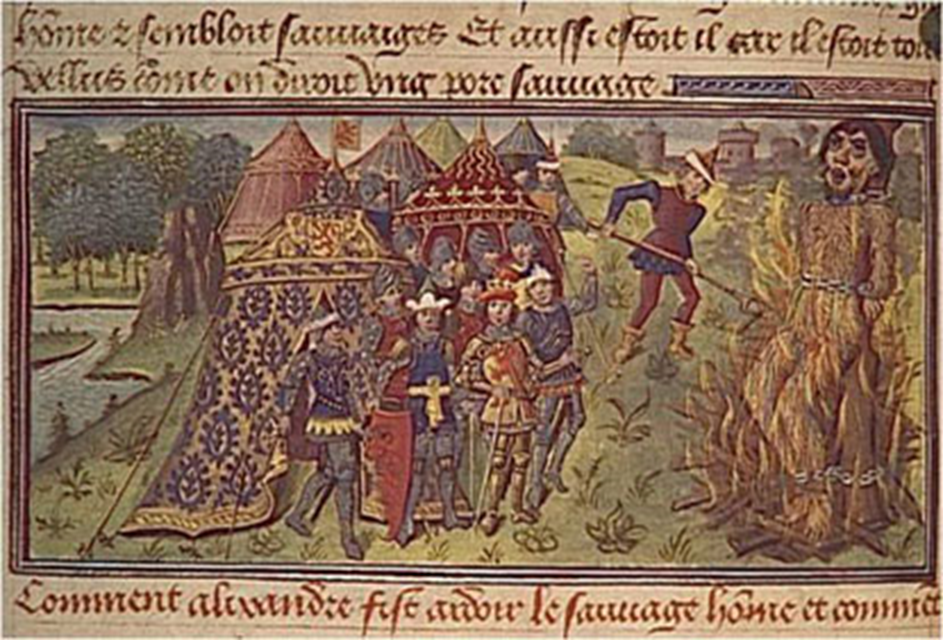 hõme ⁊ sembloit sauuaiges Et aussi estoit il car il estoit tou
vellus cõme on diroit vng porc sauuage
Comment alixandre fist ardoir le sauuage hõme et commẽt